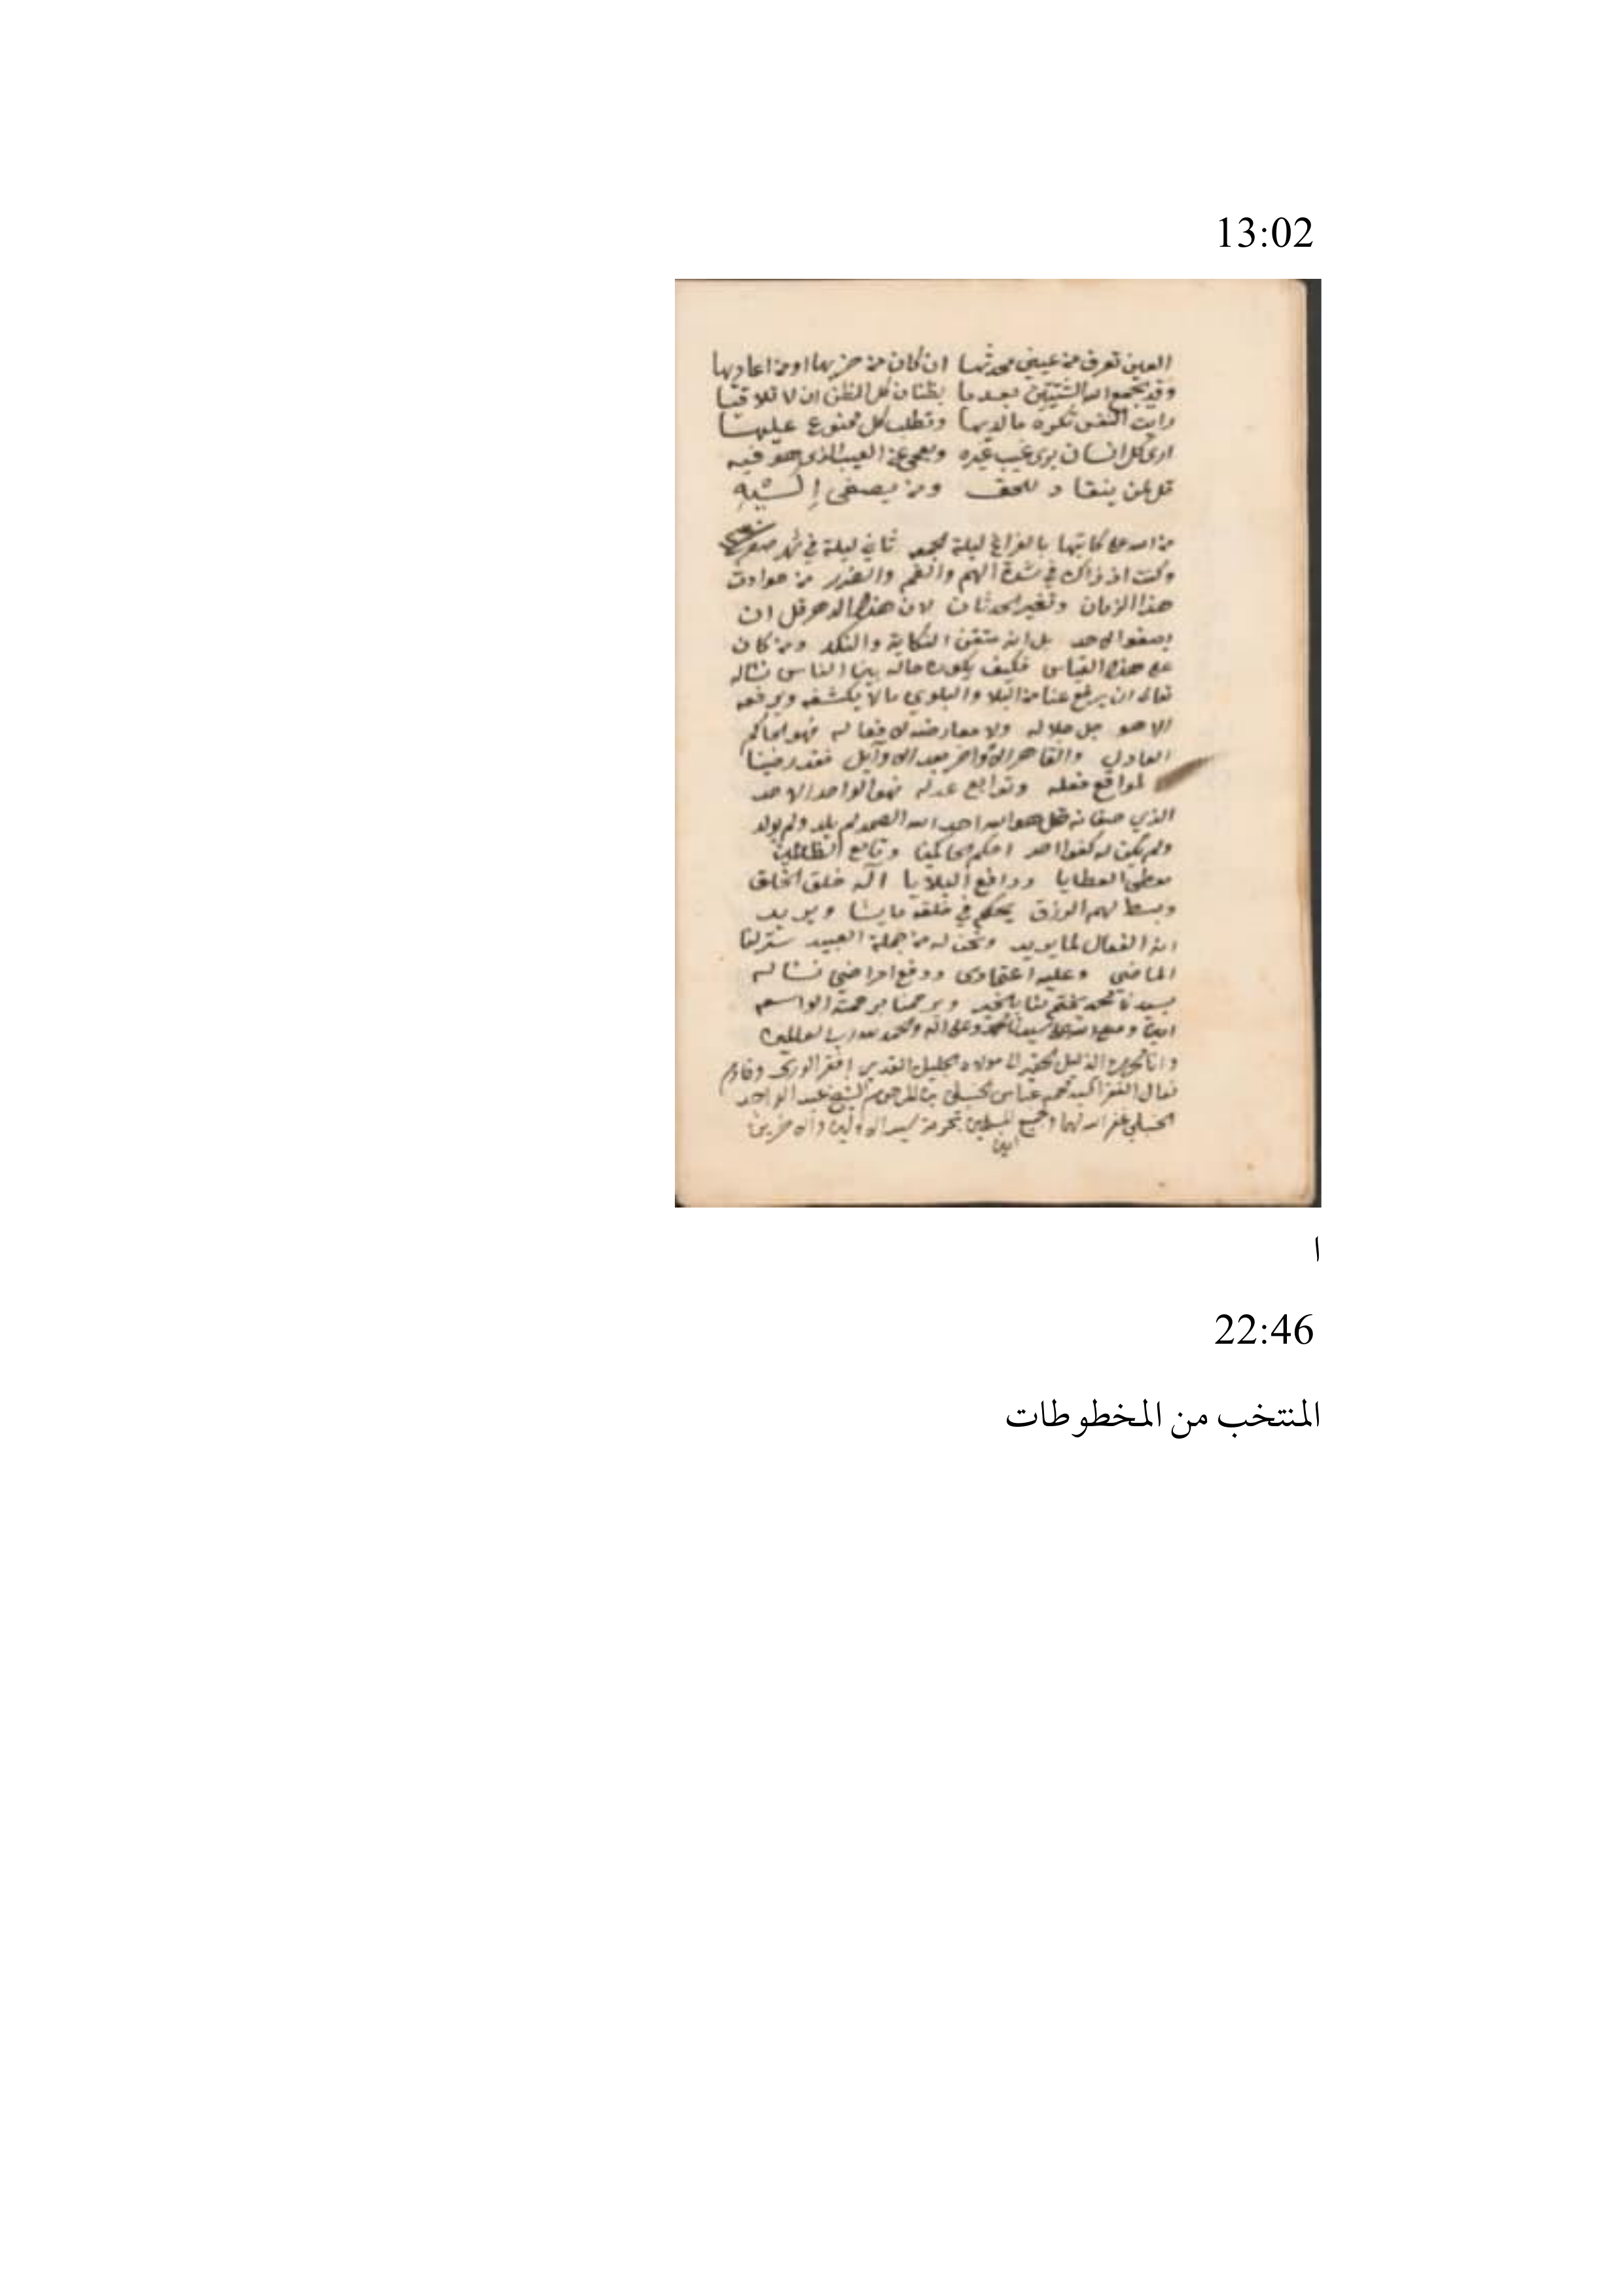 13:02
العين تعرف من عيني محدثها ان كان من حزبها او من اعاديها
وقد يجمع الله الشتيتين بعدما يظنان كل الظن ان لا تلاقيا
رايت النفس تكره مالديها وتطلب كل ممنوع عليها
ارى كل انسان يرى عيب غيره ويعمى عن العيب الذي هو فيه
قل لمن ينقاد للحق ومن يصغى إلى
من الله على كاتبها بالفراغ ليلة الجمعه ثاني ليلة في شهر صفر
وكنت اذ ذاك في شدة الهم والغم والضرر من حوادث
هذا الزمان وتغير الحدثان لان هذا الدهر قل ان
يصفوا لاحد بل انه متقن النكاية والنكد ومن كان
على هذا القياس فكيف يكون حاله بين الناس نساله
تعالى ان يرفع عنا من البلا والبلوي مالا يكشفه ويرفعه
الا هو جل جلاله ولا معارض له في فعاله فهو الحاكم
العادل والقاهر فقد رضينا
لمواقع فعله وتوابع عدله فهو الواحد الاحد
الذي صفاته قل هو الله احد الله الصمد لم يلد ولم يولد
ولم يكن له كفوا احد احكم الحاكمين وقامع الظالمين
معطي العطايا ودافع البلايا اله خلق الخلق
وبسط لهم الرزق يحكم في خلقه ما يشا ويريد
انه الفعال لما يريد ونحن له من جملة العبيد
الماضي وعليه اعتمادى ودفع امراضي نساله
بسيدنا محمد يختم لنا بالخير ويرحمنا برحمته الواسعه
امين وصلى الله على سيدنا محمد وعلى اله والحمد لله رب العالمين
وانا الذليل الحقير الى مولاه الجليل القدير افقر الورى وخادم
نعال الفقرا محمد عباس الحنبلي بن المرحوم الشيخ عبد الواحد
الحنبلي غفر الله لهما ولجميع المسلمين بحرمة سيد الاولين والاخرين
امين
ا
22:46
المنتخب من المخطوطات